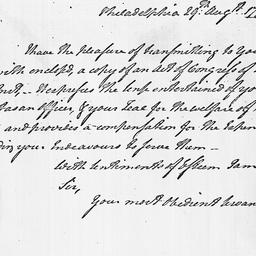 Philadelphia 29th Augt. 17
I have the pleasure of transmitting to You
with enclosed, a copy of an Act of Congress of
Inst, - Expresses the sense entertained of yo
as an officer, & your Zeal for the welfare of
and provides a compensation for the Expen
in your Endeavours to serve them -
With sentiments of Esteem I am
Sir,
Your most Obedient Servan